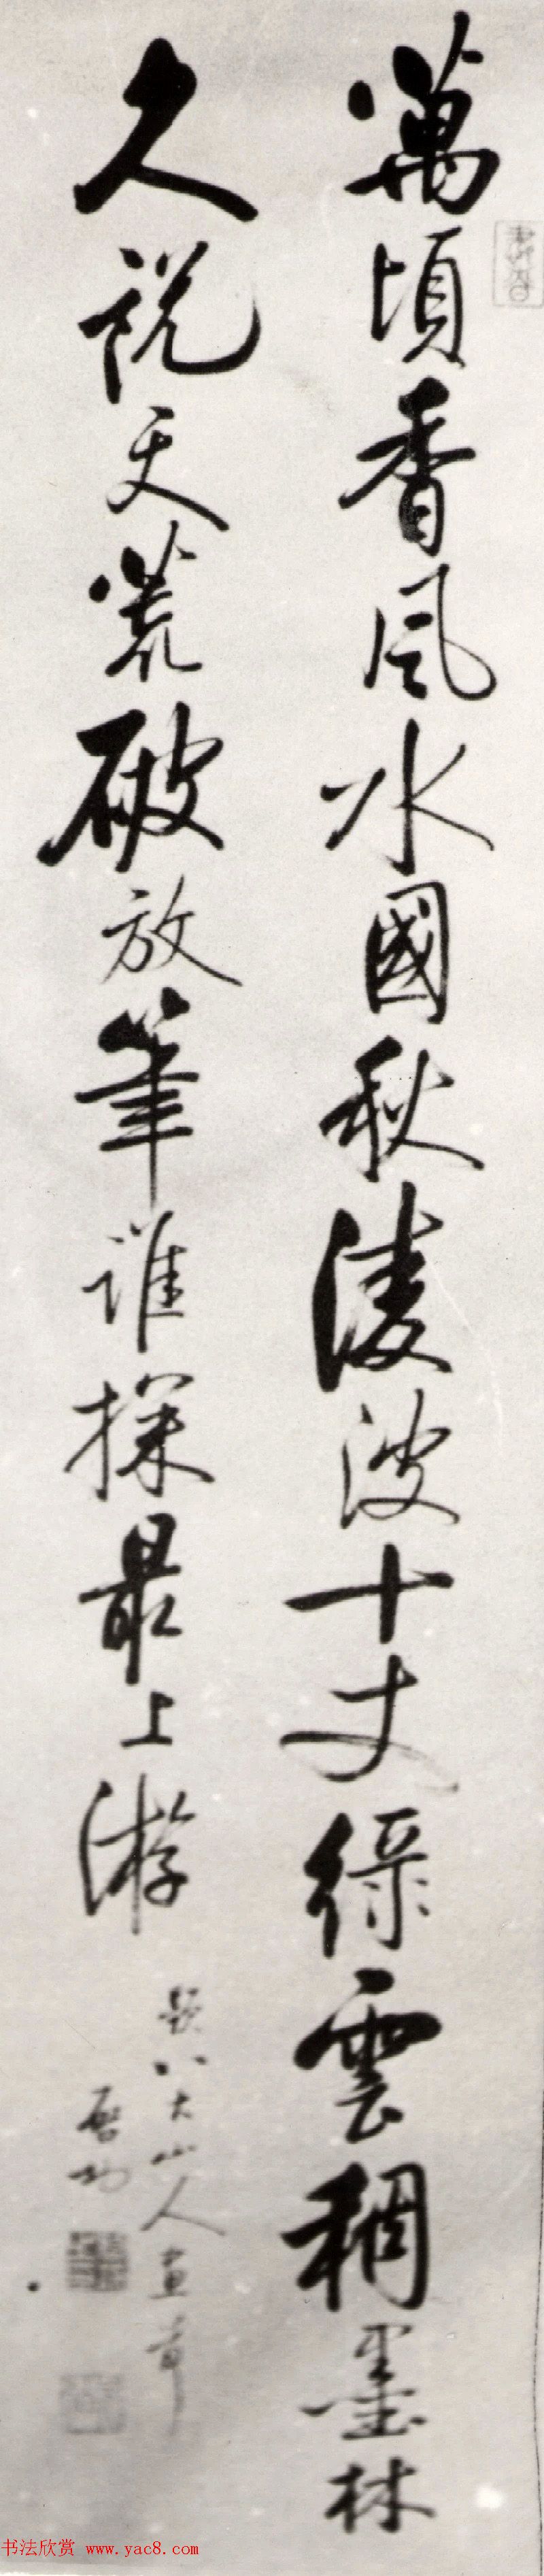 萬頃香風水國秋凌波十丈綠雲稠墨林
久說天荒破放筆誰探最上游
題八大山人畫荷
啟功
书法欣赏 www.yac8.com